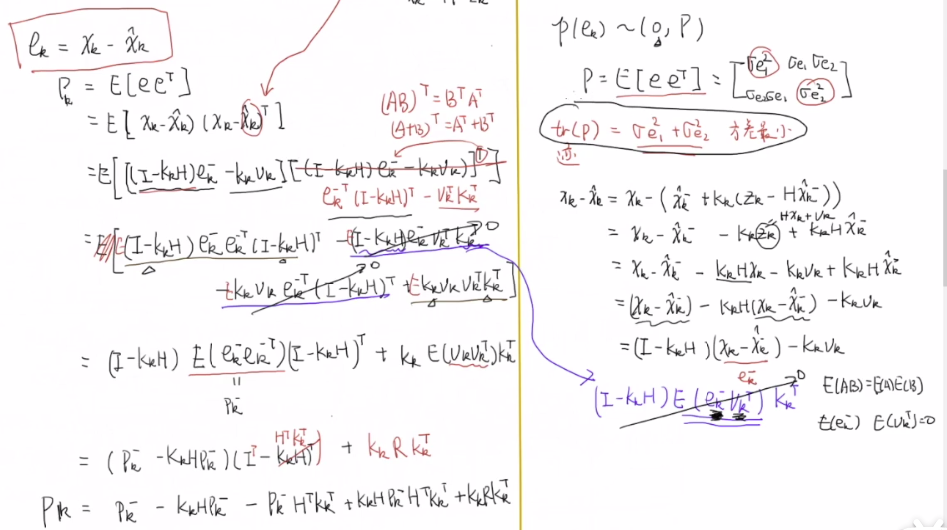 e_k = x_k - x̂_k
P_k = E[e e^T]
= E[ x_k - x̂_k) (x_k - x̂_k)^T ]
(AB)^T = B^T A^T
(A+B)^T = A^T + B^T
= E[ [(I - K_k H) e_k^- - K_k v_k] [(I - K_k H) e_k^- - K_k v_k)]^T ]
e_k^{-T} (I - K_k H)^T - v_k^T K_k^T
= E[ E(I - K_k H) e_k^- e_k^{-T} (I - K_k H)^T - E(I - K_k H) e_k^- v_k^T K_k^T → 0
- E K_k v_k e_k^{-T} (I - K_k H)^T → 0 + E K_k v_k v_k^T K_k^T ]
= (I - K_k H) E(e_k^- e_k^{-T}) (I - K_k H)^T + K_k E(v_k v_k^T) K_k^T
P_k^-
H^T K_k^T
= (P_k^- - K_k H P_k^-) (I^T - K_k H)^T) + K_k R K_k^T
P_k = P_k^- - K_k H P_k^- - P_k^- H^T K_k^T + K_k H P_k^- H^T K_k^T + K_k R K_k^T
p(e_k) ~ (0, P)
P = E[e e^T] = [ σe_1^2 σe_1 σe_2
σe_2 σe_1 σe_2^2 ]
tr(P) = σe_1^2 + σe_2^2 方差最小
迹
x_k - x̂_k = x_k - (x̂_k^- + K_k (z_k - H x̂_k^-))
H x_k + v_k
= x_k - x̂_k^- - K_k z_k + K_k H x̂_k^-
= x_k - x̂_k^- - K_k H x_k - K_k v_k + K_k H x̂_k^-
= (x_k - x̂_k^-) - K_k H (x_k - x̂_k^-) - K_k v_k
= (I - K_k H) (x_k - x̂_k^-) - K_k v_k
e_k^-
(I - K_k H) E(e_k^- v_k^T) K_k^T → 0
E(AB) = E(A)E(B)
E(e_k^-) E(v_k^T) = 0